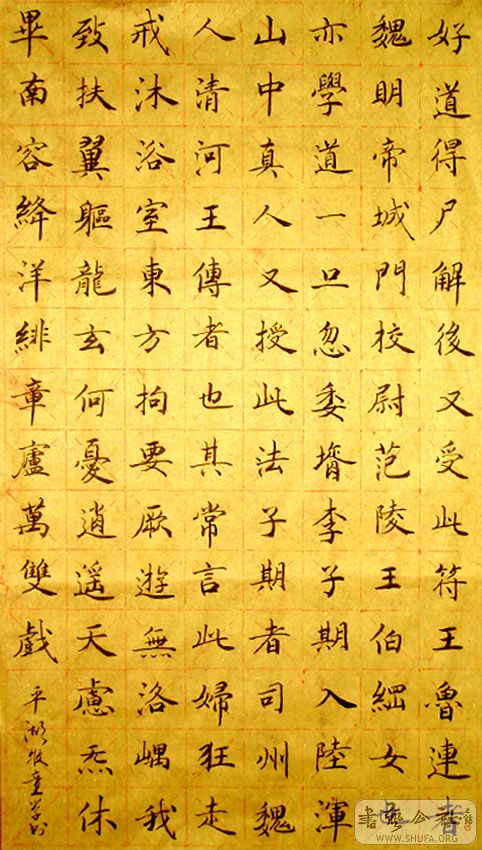 好道得尸解後又受此符王魯連者
魏明帝城門校尉范陵王伯綱女也
亦學道一旦忽委壻李子期入陸渾
山中真人又授此法子期者司州魏
人清河王傳者也其常言此婦狂走
戒沐浴室東方拘要厥遊無洛嵎我
致扶翼軀龍玄何憂逍遥天慮炁休
畢南容絳洋緋章廬萬雙戲
平湖牧童
書藝公社
WWW.SHUFA.ORG